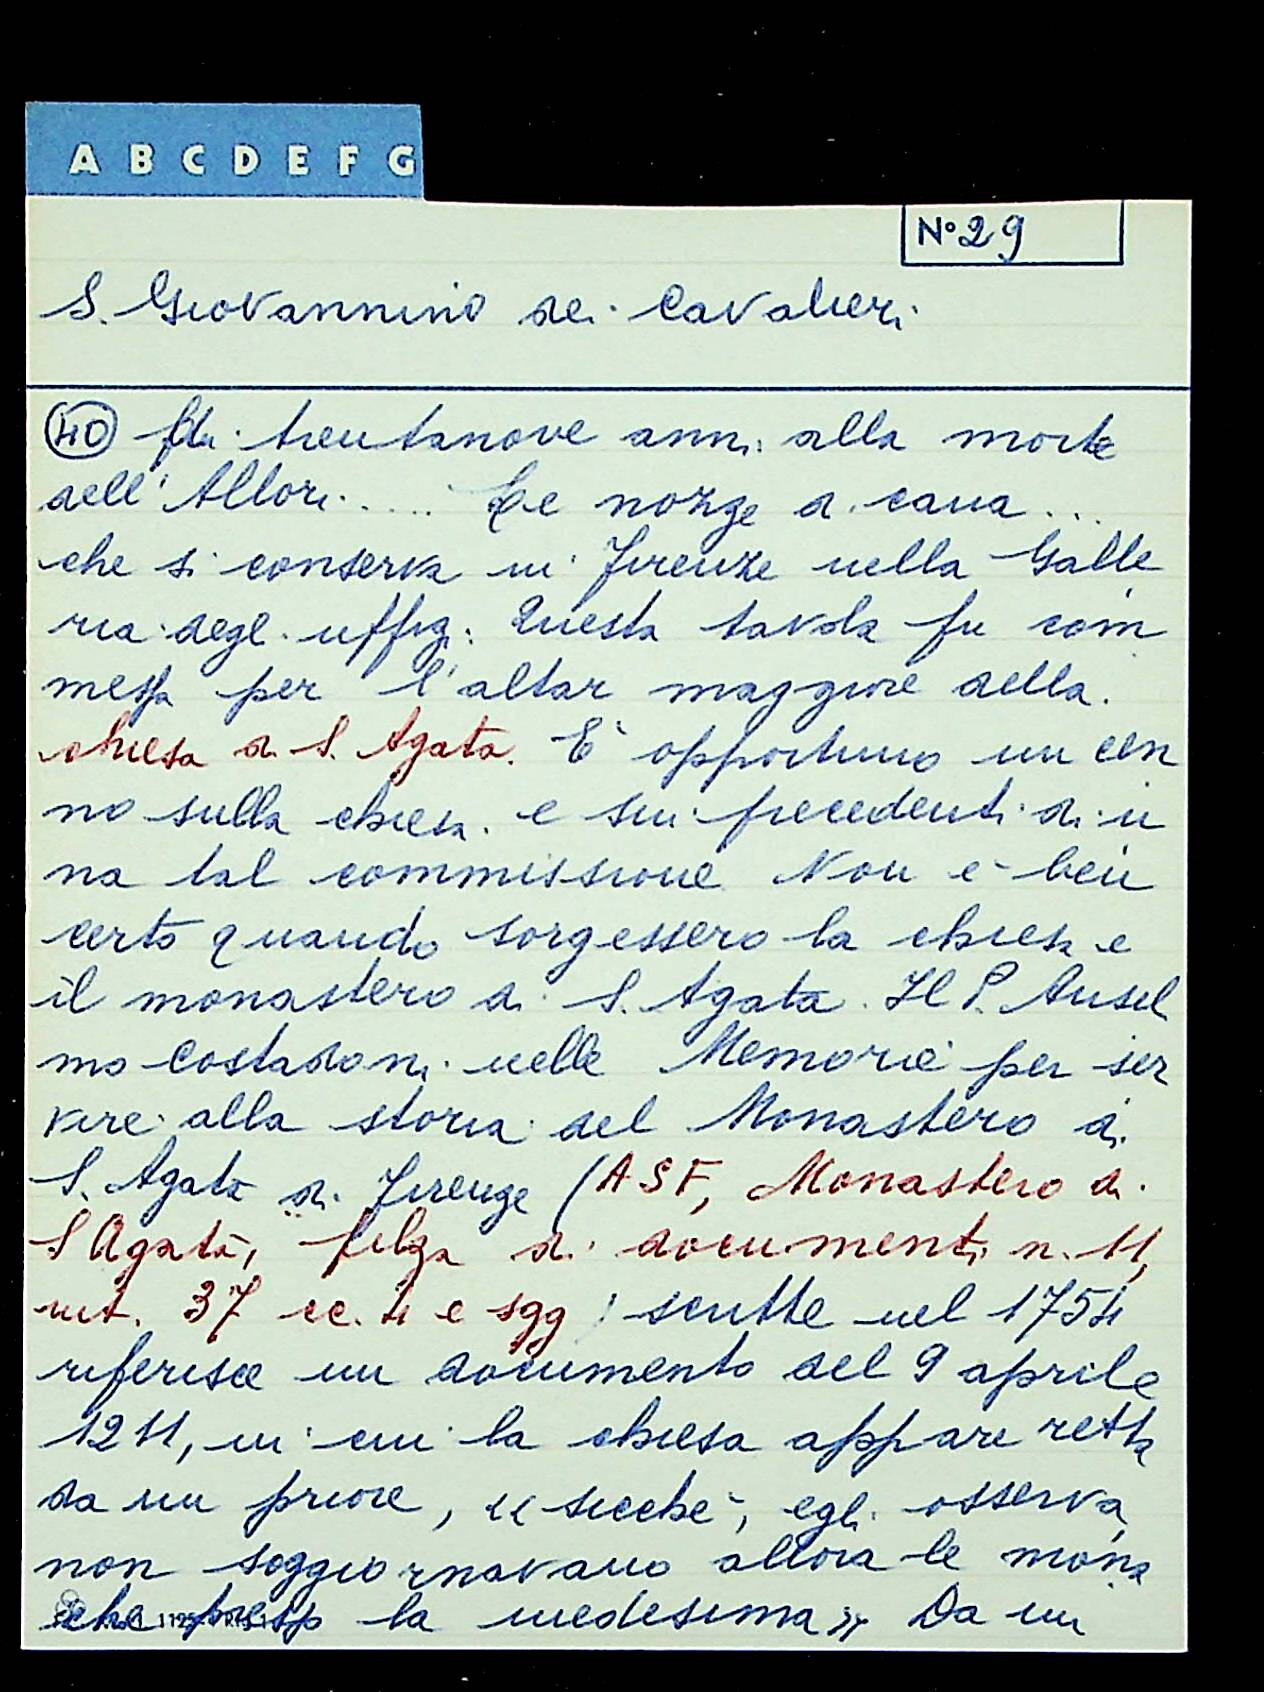 A B C D E F G
N° 29
S. Giovannino dei Cavalieri
40 trentanove anni alla morte
dell'Allori .... Le nozze di cana ...
che si conserva in Firenze nella Galle
ria degl. uffiz: Questa tavola fu com
messa per l'altar maggiore della
chiesa di S. Agata. E' opportuno un cen
no sulla chiesa e sui precedenti di u
na tal commissione Non è ben
certo quando sorgessero la chiesa e
il monastero di S. Agata. Il P. Ansel
mo Costadoni nelle Memorie per ser
vire alla storia del Monastero di
S. Agata di Firenze (ASF, Monastero di
S Agata, filza di documenti n. 11,
int. 37 cc. 4 e sgg) scritte nel 1754
riferisce un documento del 9 aprile
1211, in cui la chiesa appare retta
da un priore, « sicchè, egli osserva,
non soggiornavano allora le mona
che presso la medesima» Da un